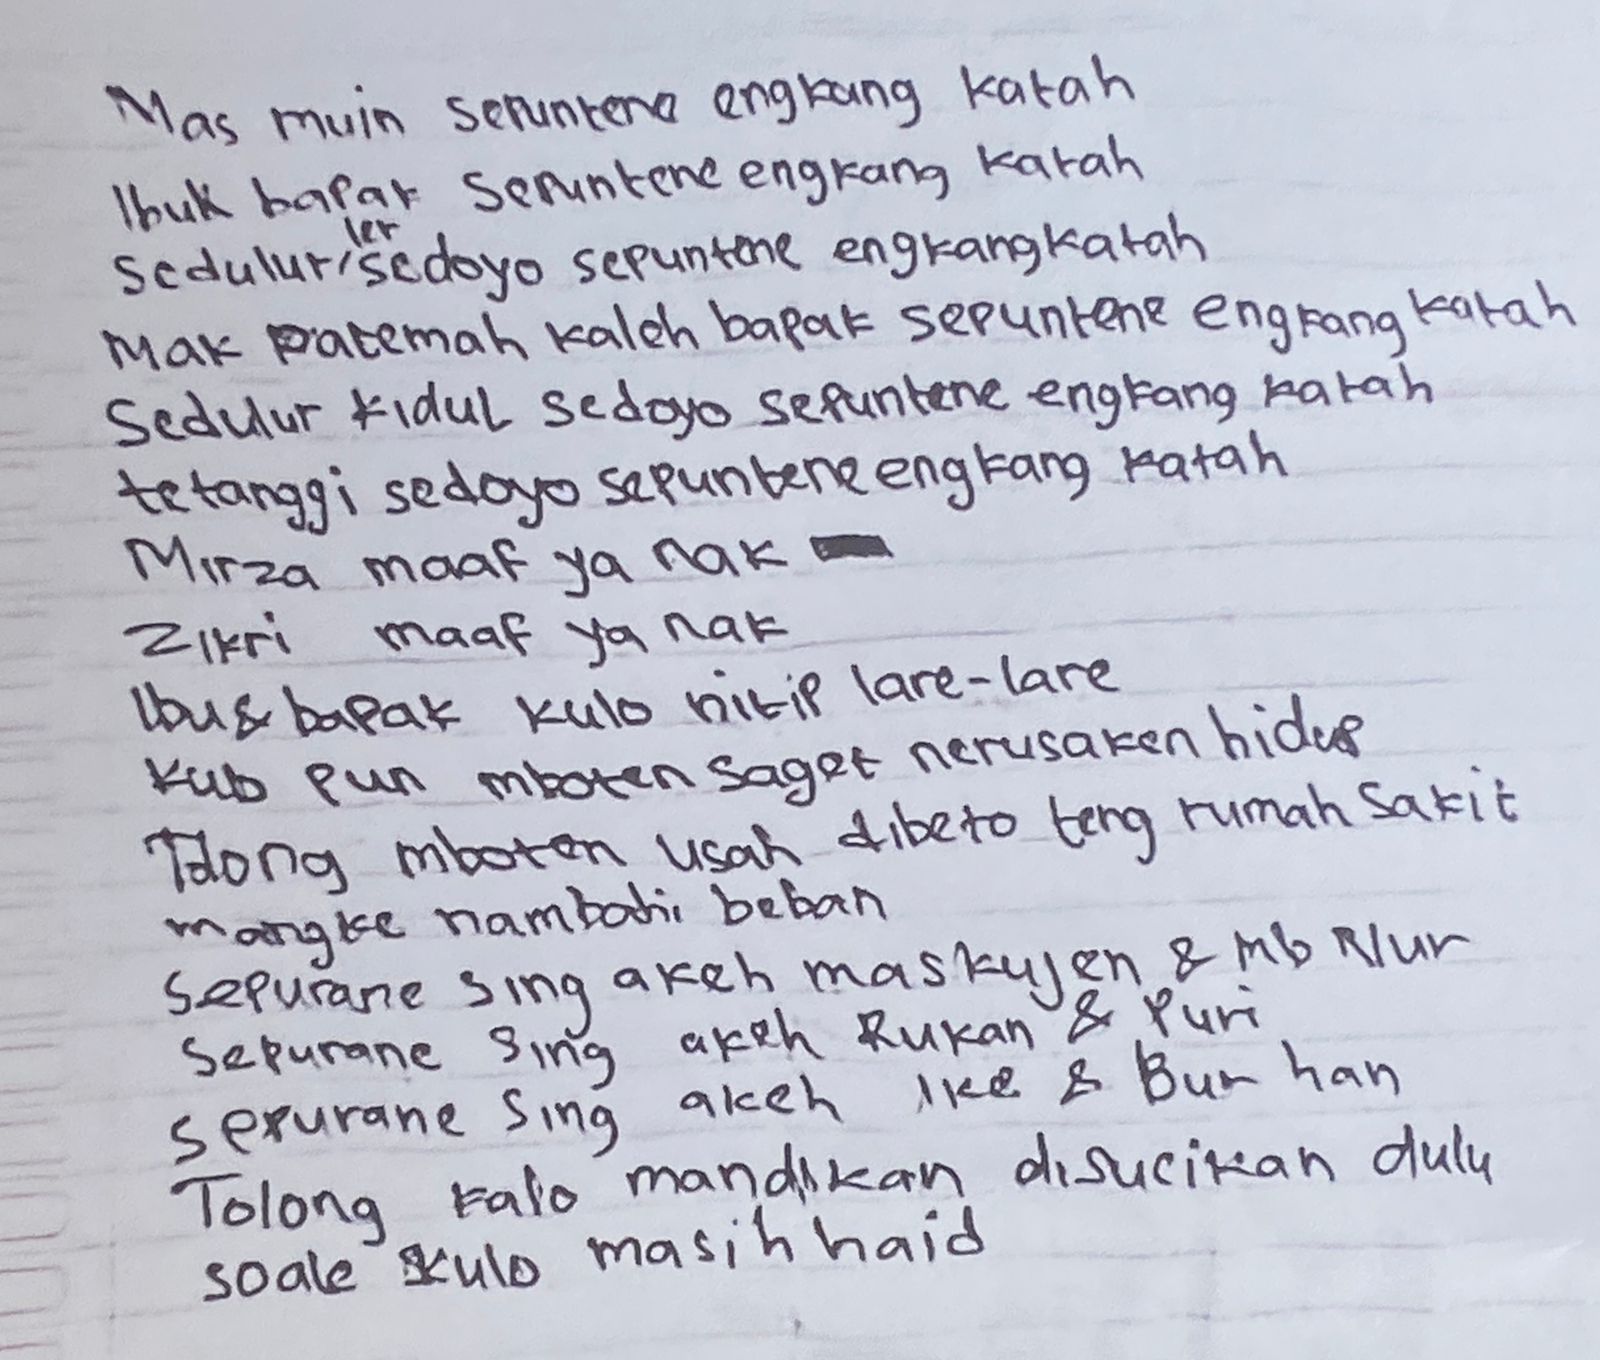 Mas muin sepuntene engkang katah
Ibuk bapak sepuntene engkang katah
Sedulur ler sedoyo sepuntene engkang katah
Mak patemah kaleh bapak sepuntene engkang katah
Sedulur kidul sedoyo sepuntene engkang katah
tetanggi sedoyo sepuntene engkang katah
Mirza maaf ya nak
Zikri maaf ya nak
Ibu & bapak kulo nitip lare-lare
kulo pun mboten saget nerusaken hidup
Tolong mboten usah dibeto teng rumah sakit
mangke nambahi beban
Sepurane sing akeh mas kujen & Mb Nur
Sepurane sing akeh Rukan & Puri
Sepurane sing akeh Ike & Burhan
Tolong kalo mandikan disucikan dulu
soale kulo masih haid